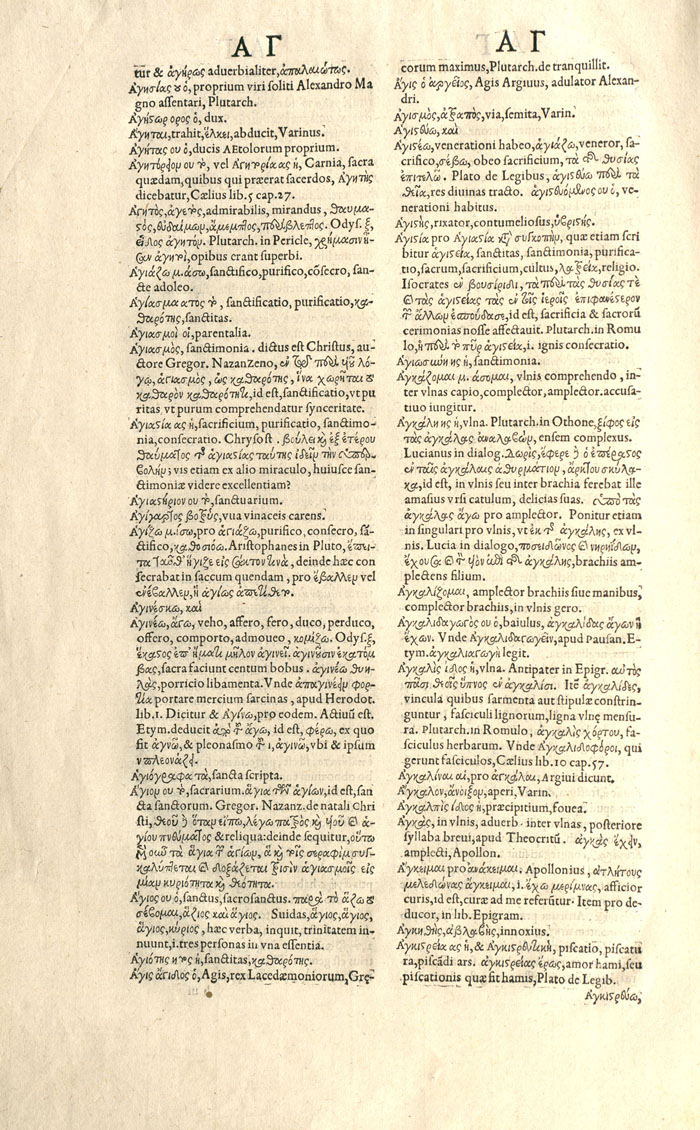 ΑΓ
tur & ἀγήρως aduerbialiter, ἀπαλαιώτως.
Αγησίας ου ὁ, proprium viri soliti Alexandro Ma
gno assentari, Plutarch.
Αγήτωρ ορος ὁ, dux.
Αγηται, trahit, ἕλκει, abducit, Varinus.
Αγήτας ου ὁ, ducis AEtolorum proprium.
vel Carnia, sacra
quædam, quibus qui præerat sacerdos, Αγητὴς
dicebatur, Cælius lib. 5 cap. 27.
Αγητὸς, admirabilis, mirandus, θαυμα-
Odys. ξ,
Plutarch. in Pericle,
opibus erant superbi.
Αγιάζω μ. άσω, sanctifico, purifico, cõsecro, san-
cte adoleo.
Αγίασμα ατος τὸ, sanctificatio, purificatio, κα-
θαρότης, sanctitas.
Αγιασμοὶ οἱ, parentalia.
Αγιασμὸς, sanctimonia. dictus est Christus, au-
ctore Gregor. NazanZeno, ἐν τῷ περὶ τοῦ λό-
γου, ἁγιασμὸς, ὡς καθαρότης, ἵνα χωρῆται τὸ
καθαρὸν καθαρότητι, id est, sanctificatio, vt pu
ritas vt purum comprehendatur synceritate.
Αγιαστία ας ἡ, sacrificium, purificatio, sanctimo-
nia, consecratio. Chrysost. βούλει καὶ ἐξ ἑτέρου
θαύματος τῆς ἁγιαστίας ταύτης ἰδεῖν τὴν ὑπερ-
βολήν; vis etiam ex alio miraculo, huiusce san-
ctimoniæ videre excellentiam?
Αγιαστήριον ου τὸ, sanctuarium.
Αγίγαρτος βότρυς, vua vinaceis carens.
Αγίζω μ. ίσω, pro ἁγιάζω, purifico, consecro, sã-
ctifico, καθοσιόω. Aristophanes in Pluto, ἔπει-
τα ταῦθ' ἥγιζεν εἰς σάκταν τινὰ, deinde hæc con
secrabat in saccum quendam, pro ἔβαλλεν vel
ἐνέβαλλεν, ἢ ἁγίως ἀπετίθετο.
Αγινέσκω, καὶ
Αγινέω, ἄγω, veho, affero, fero, duco, perduco,
offero, comporto, admoueo, κομίζω. Odys. ξ,
ἕκαστος ἐπ' ἤματι μῆλον ἀγινεῖ. ἀγινεῖσιν ἑκατόμ
βας, sacra faciunt centum bobus. ἀγινέω θυη-
λὰς, porricio libamenta. Vnde ἀπαγινεῖν φορ-
τία portare mercium sarcinas, apud Herodot.
lib. 1. Dicitur & Αγίνω, pro eodem. Actiuũ est.
Etym. deducit ἀπὸ τοῦ ἄγω, id est, φέρω, ex quo
fit ἀγινῶ, & pleonasmo τοῦ ι, ἀγινῶ, vbi & ipsum
ν πλεονάζει.
Αγιόγραφα τὰ, sancta scripta.
Αγιον ου τὸ, sacrarium. ἅγια τῶν ἁγίων, id est, san
cta sanctorum. Gregor. Nazanz. de natali Chri
sti, θεοῦ δ' ὅταν εἴπω, λέγω πατρὸς καὶ υἱοῦ καὶ ἁ-
γίου πνεύματος & reliqua: deinde sequitur, οὕτω
μὲν οὖν τὰ ἅγια τῶν ἁγίων, ἃ καὶ τοῖς σεραφὶμ συγ-
καλύπτεται καὶ δοξάζεται τρισὶν ἁγιασμοῖς εἰς
μίαν κυριότητα καὶ θεότητα.
Αγιος ου ὁ, sanctus, sacrosanctus. παρὰ τὸ ἅζω τὸ
σέβομαι, ἅζιος καὶ ἅγιος. Suidas, ἅγιος, ἅγιος,
ἅγιος, κύριος, hæc verba, inquit, trinitatem in-
nuunt, i. tres personas in vna essentia.
Αγιότης ητος ἡ, sanctitas, καθαρότης.
Αγις άγιδος ὁ, Agis, rex Lacedæmoniorum, Græ-
ΑΓ
corum maximus, Plutarch. de tranquillit.
Αγις ὁ ἀργεῖος, Agis Argiuus, adulator Alexan-
dri.
Αγισμὸς, ἀτραπὸς, via, semita, Varin.
Αγιστεύω, καὶ
Αγιστέω, venerationi habeo, ἁγιάζω, veneror, sa-
crifico, σέβω, obeo sacrificium, τὰ τῆς θυσίας
ἐπιτελῶ. Plato de Legibus, ἁγιστεύω περὶ τὰ
θεῖα, res diuinas tracto. ἁγιστευόμενος ου ὁ, ve-
nerationi habitus.
rixator, contumeliosus, ὑβριστής.
Αγιστία pro Αγιαστία κατὰ συγκοπὴν, quæ etiam scri
bitur ἁγιστεία, sanctitas, sanctimonia, purifica-
tio, sacrum, sacrificium, cultus, λατρεία, religio.
Isocrates ἐν βουσίριδι, περὶ τὰς θυσίας τε
καὶ τὰς ἁγιστείας τὰς ἐν τοῖς ἱεροῖς ἐπιφανέστερον
τῶν ἄλλων ἐσπούδασε, id est, sacrificia & sacrorũ
cerimonias nosse affectauit. Plutarch. in Romu
lo, ἡ περὶ τὸ πῦρ ἁγιστεία, i. ignis consecratio.
Αγιωσύνη ης ἡ, sanctimonia.
Αγκάζομαι μ. άσομαι, vlnis comprehendo, in-
ter vlnas capio, complector, amplector. accusa-
tiuo iungitur.
Αγκάλη ης ἡ, vlna. Plutarch. in Othone, ξίφος εἰς
τὰς ἀγκάλας ἀναλαβὼν, ensem complexus.
Lucianus in dialog. Δωρὶς, ἔφερε δ' ὁ ἐπέραστος
ἐν ταῖς ἀγκάλαις ἀθυρμάτιον, ἄρκτου σκύλα-
κα, id est, in vlnis seu inter brachia ferebat ille
amasius vrsi catulum, delicias suas. ὑπὸ τὰς
ἀγκάλας ἄγω pro amplector. Ponitur etiam
in singulari pro vlnis, vt ἐκ τῆς ἀγκάλης, ex vl-
nis. Lucia in dialogo, ποσειδῶνος καὶ νηρηΐδων,
ἔχουσα καὶ τὸν υἱὸν ἐπὶ τῆς ἀγκάλης, brachiis am-
plectens filium.
Αγκαλίζομαι, amplector brachiis siue manibus,
complector brachiis, in vlnis gero.
Αγκαλιδαγωγὸς ου ὁ, baiulus, ἀγκαλίδας ἄγων ἢ
ἔχων. Vnde Αγκαλιδαγωγεῖν, apud Pausan. E-
tym. ἀγκαλιαγωγεῖν legit.
Αγκαλὶς ίδος ἡ, vlna. Antipater in Epigr. αὐτὸς
πᾶσι θεοῖς ὕπνος ἐν ἀγκαλίσι. Itẽ ἀγκαλίδες,
vincula quibus sarmenta aut stipulæ constrin-
guntur, fasciculi lignorum, ligna vlnę mensu-
ra. Plutarch. in Romulo, ἀγκαλὶς χόρτου, fa-
sciculus herbarum. Vnde Αγκαλιδοφόροι, qui
gerunt fasciculos, Cælius lib. 10 cap. 57.
Αγκαλίναι αἱ, pro ἀγκάλαι, Argiui dicunt.
Αγκαλον, ἄνοιξον, aperi, Varin.
Αγκαλπὶς ίδος ἡ, præcipitium, fouea.
Αγκὰς, in vlnis, aduerb. inter vlnas, posteriore
syllaba breui, apud Theocritũ. ἀγκὰς ἔχειν,
amplecti, Apollon.
Αγκειμαι pro ἀνάκειμαι. Apollonius, ἀτλήτους
μελεδῶνας ἄγκειμαι, i. ἔχω μερίμνας, afficior
curis, id est, curæ ad me referũtur. Item pro de-
ducor, in lib. Epigram.
Αγκηθὴς, ἀβλαβὴς, innoxius.
Αγκιστρεία ας ἡ, & Αγκιστρευτικὴ, piscatio, piscatu
ra, piscãdi ars. ἀγκιστρείας ἔρως, amor hami, seu
piscationis quæ fit hamis, Plato de Legib.
Αγκιστρεύω,